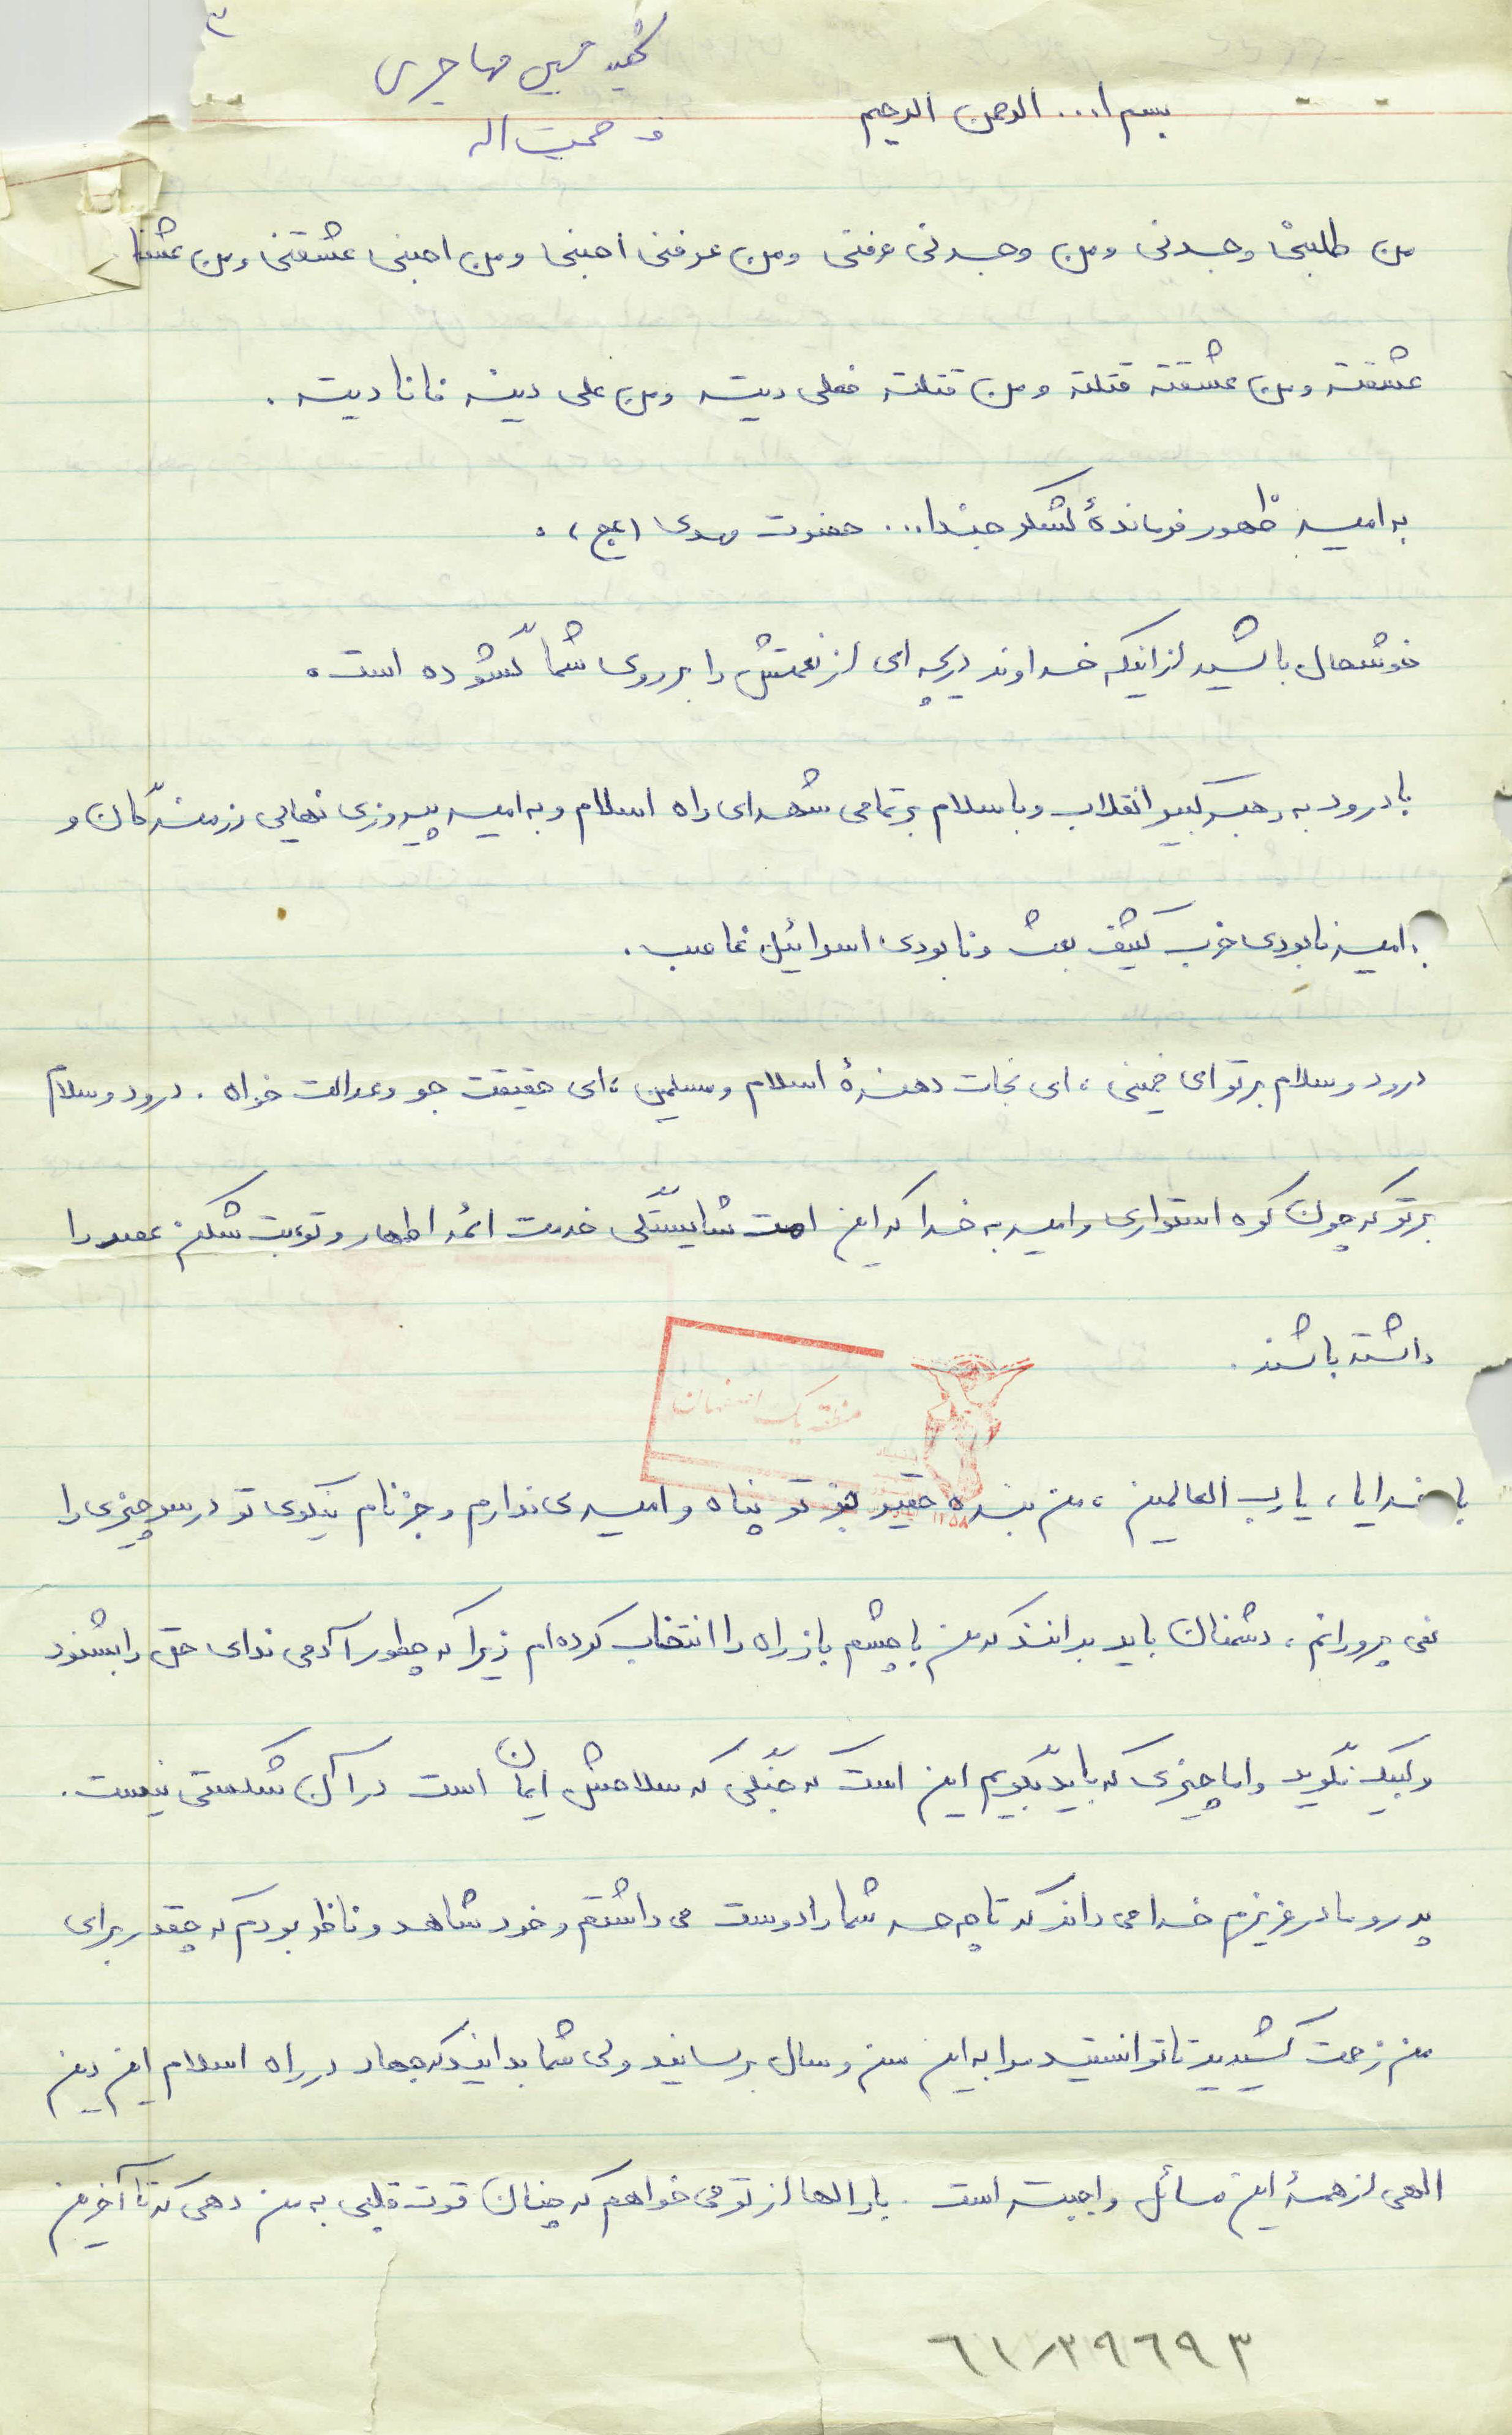 ۳
شهید حسین مهاجری
ف حجت اله
بسم ا... الرحمن الرحیم
من طلبنی وجدنی ومن وجدنی عرفنی ومن عرفنی احبنی ومن احبنی عشقنی ومن عشقنی
عشقته ومن عشقته قتلته ومن قتلته فعلی دیته ومن علی دیته فانا دیته .
به امید ظهور فرماندهٔ لشکر جندا... حضرت مهدی (عج) .
خوشحال باشید از اینکه خداوند دریچه ای از نعمتش را بر روی شما گشوده است .
با درود به رهبر کبیر انقلاب و با سلام بر تمامی شهدای راه اسلام و به امید پیروزی نهایی رزمندگان و
به امید نابودی حزب کثیف بعث و نابودی اسرائیل غاصب .
درود و سلام بر تو ای خمینی ، ای نجات دهندهٔ اسلام و مسلمین ، ای حقیقت جو و عدالت خواه . درود و سلام
بر تو که چون کوه استواری و امید به خدا که این امت شایستگی خدمت ائمه اطهار و تو بت شکن عصر را
داشته باشند .
منطقه یک اصفهان
بار خدایا ، یا رب العالمین ، من بنده حقیر جز تو پناه و امیدی ندارم و جز نام نیکوی تو در سر چیزی را
نمی پرورانم ، دشمنان باید بدانند که من با چشم باز راه را انتخاب کرده ام زیرا که چطور آدمی ندای حق را بشنود
و لبیک نگوید و اما چیزی که باید بگویم این است که جنگی که سلاحش ایمان است در آن شکستی نیست .
پدر و مادر عزیزم خدا می داند که تا چه حد شما را دوست می داشتم و خود شاهد و ناظر بودم که چقدر برای
من زحمت کشیدید تا توانستید مرا به این سن و سال برسانید ولی شما بدانید که جهاد در راه اسلام این دین
الهی از همهٔ این مسائل واجبتر است . بار الها از تو می خواهم که چنان قوت قلبی به من دهی که تا آخرین
٦١/٣٩٦٩٣